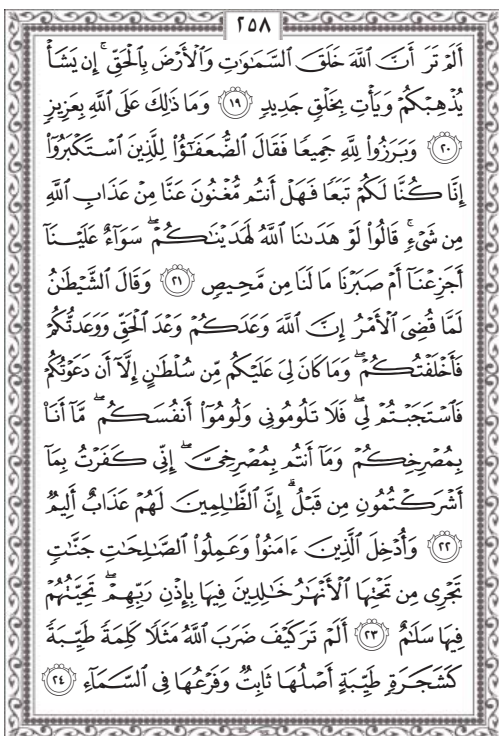 ٢٥٨
أَلَمْ تَرَ أَنَّ ٱللَّهَ خَلَقَ ٱلسَّمَٰوَٰتِ وَٱلْأَرْضَ بِٱلْحَقِّ ۚ إِن يَشَأْ
يُذْهِبْكُمْ وَيَأْتِ بِخَلْقٍ جَدِيدٍ ١٩ وَمَا ذَٰلِكَ عَلَى ٱللَّهِ بِعَزِيزٍ
٢٠ وَبَرَزُوا۟ لِلَّهِ جَمِيعًا فَقَالَ ٱلضُّعَفَٰٓؤُا۟ لِلَّذِينَ ٱسْتَكْبَرُوٓا۟
إِنَّا كُنَّا لَكُمْ تَبَعًا فَهَلْ أَنتُم مُّغْنُونَ عَنَّا مِنْ عَذَابِ ٱللَّهِ
مِن شَىْءٍ ۚ قَالُوا۟ لَوْ هَدَىٰنَا ٱللَّهُ لَهَدَيْنَٰكُمْ ۖ سَوَآءٌ عَلَيْنَآ
أَجَزِعْنَآ أَمْ صَبَرْنَا مَا لَنَا مِن مَّحِيصٍ ٢١ وَقَالَ ٱلشَّيْطَٰنُ
لَمَّا قُضِىَ ٱلْأَمْرُ إِنَّ ٱللَّهَ وَعَدَكُمْ وَعْدَ ٱلْحَقِّ وَوَعَدتُّكُمْ
فَأَخْلَفْتُكُمْ ۖ وَمَا كَانَ لِىَ عَلَيْكُم مِّن سُلْطَٰنٍ إِلَّآ أَن دَعَوْتُكُمْ
فَٱسْتَجَبْتُمْ لِى ۖ فَلَا تَلُومُونِى وَلُومُوٓا۟ أَنفُسَكُم ۖ مَّآ أَنَا۠
بِمُصْرِخِكُمْ وَمَآ أَنتُم بِمُصْرِخِىَّ ۖ إِنِّى كَفَرْتُ بِمَآ
أَشْرَكْتُمُونِ مِن قَبْلُ ۗ إِنَّ ٱلظَّٰلِمِينَ لَهُمْ عَذَابٌ أَلِيمٌ
٢٢ وَأُدْخِلَ ٱلَّذِينَ ءَامَنُوا۟ وَعَمِلُوا۟ ٱلصَّٰلِحَٰتِ جَنَّٰتٍ
تَجْرِى مِن تَحْتِهَا ٱلْأَنْهَٰرُ خَٰلِدِينَ فِيهَا بِإِذْنِ رَبِّهِمْ ۖ تَحِيَّتُهُمْ
فِيهَا سَلَٰمٌ ٢٣ أَلَمْ تَرَ كَيْفَ ضَرَبَ ٱللَّهُ مَثَلًا كَلِمَةً طَيِّبَةً
كَشَجَرَةٍ طَيِّبَةٍ أَصْلُهَا ثَابِتٌ وَفَرْعُهَا فِى ٱلسَّمَآءِ ٢٤